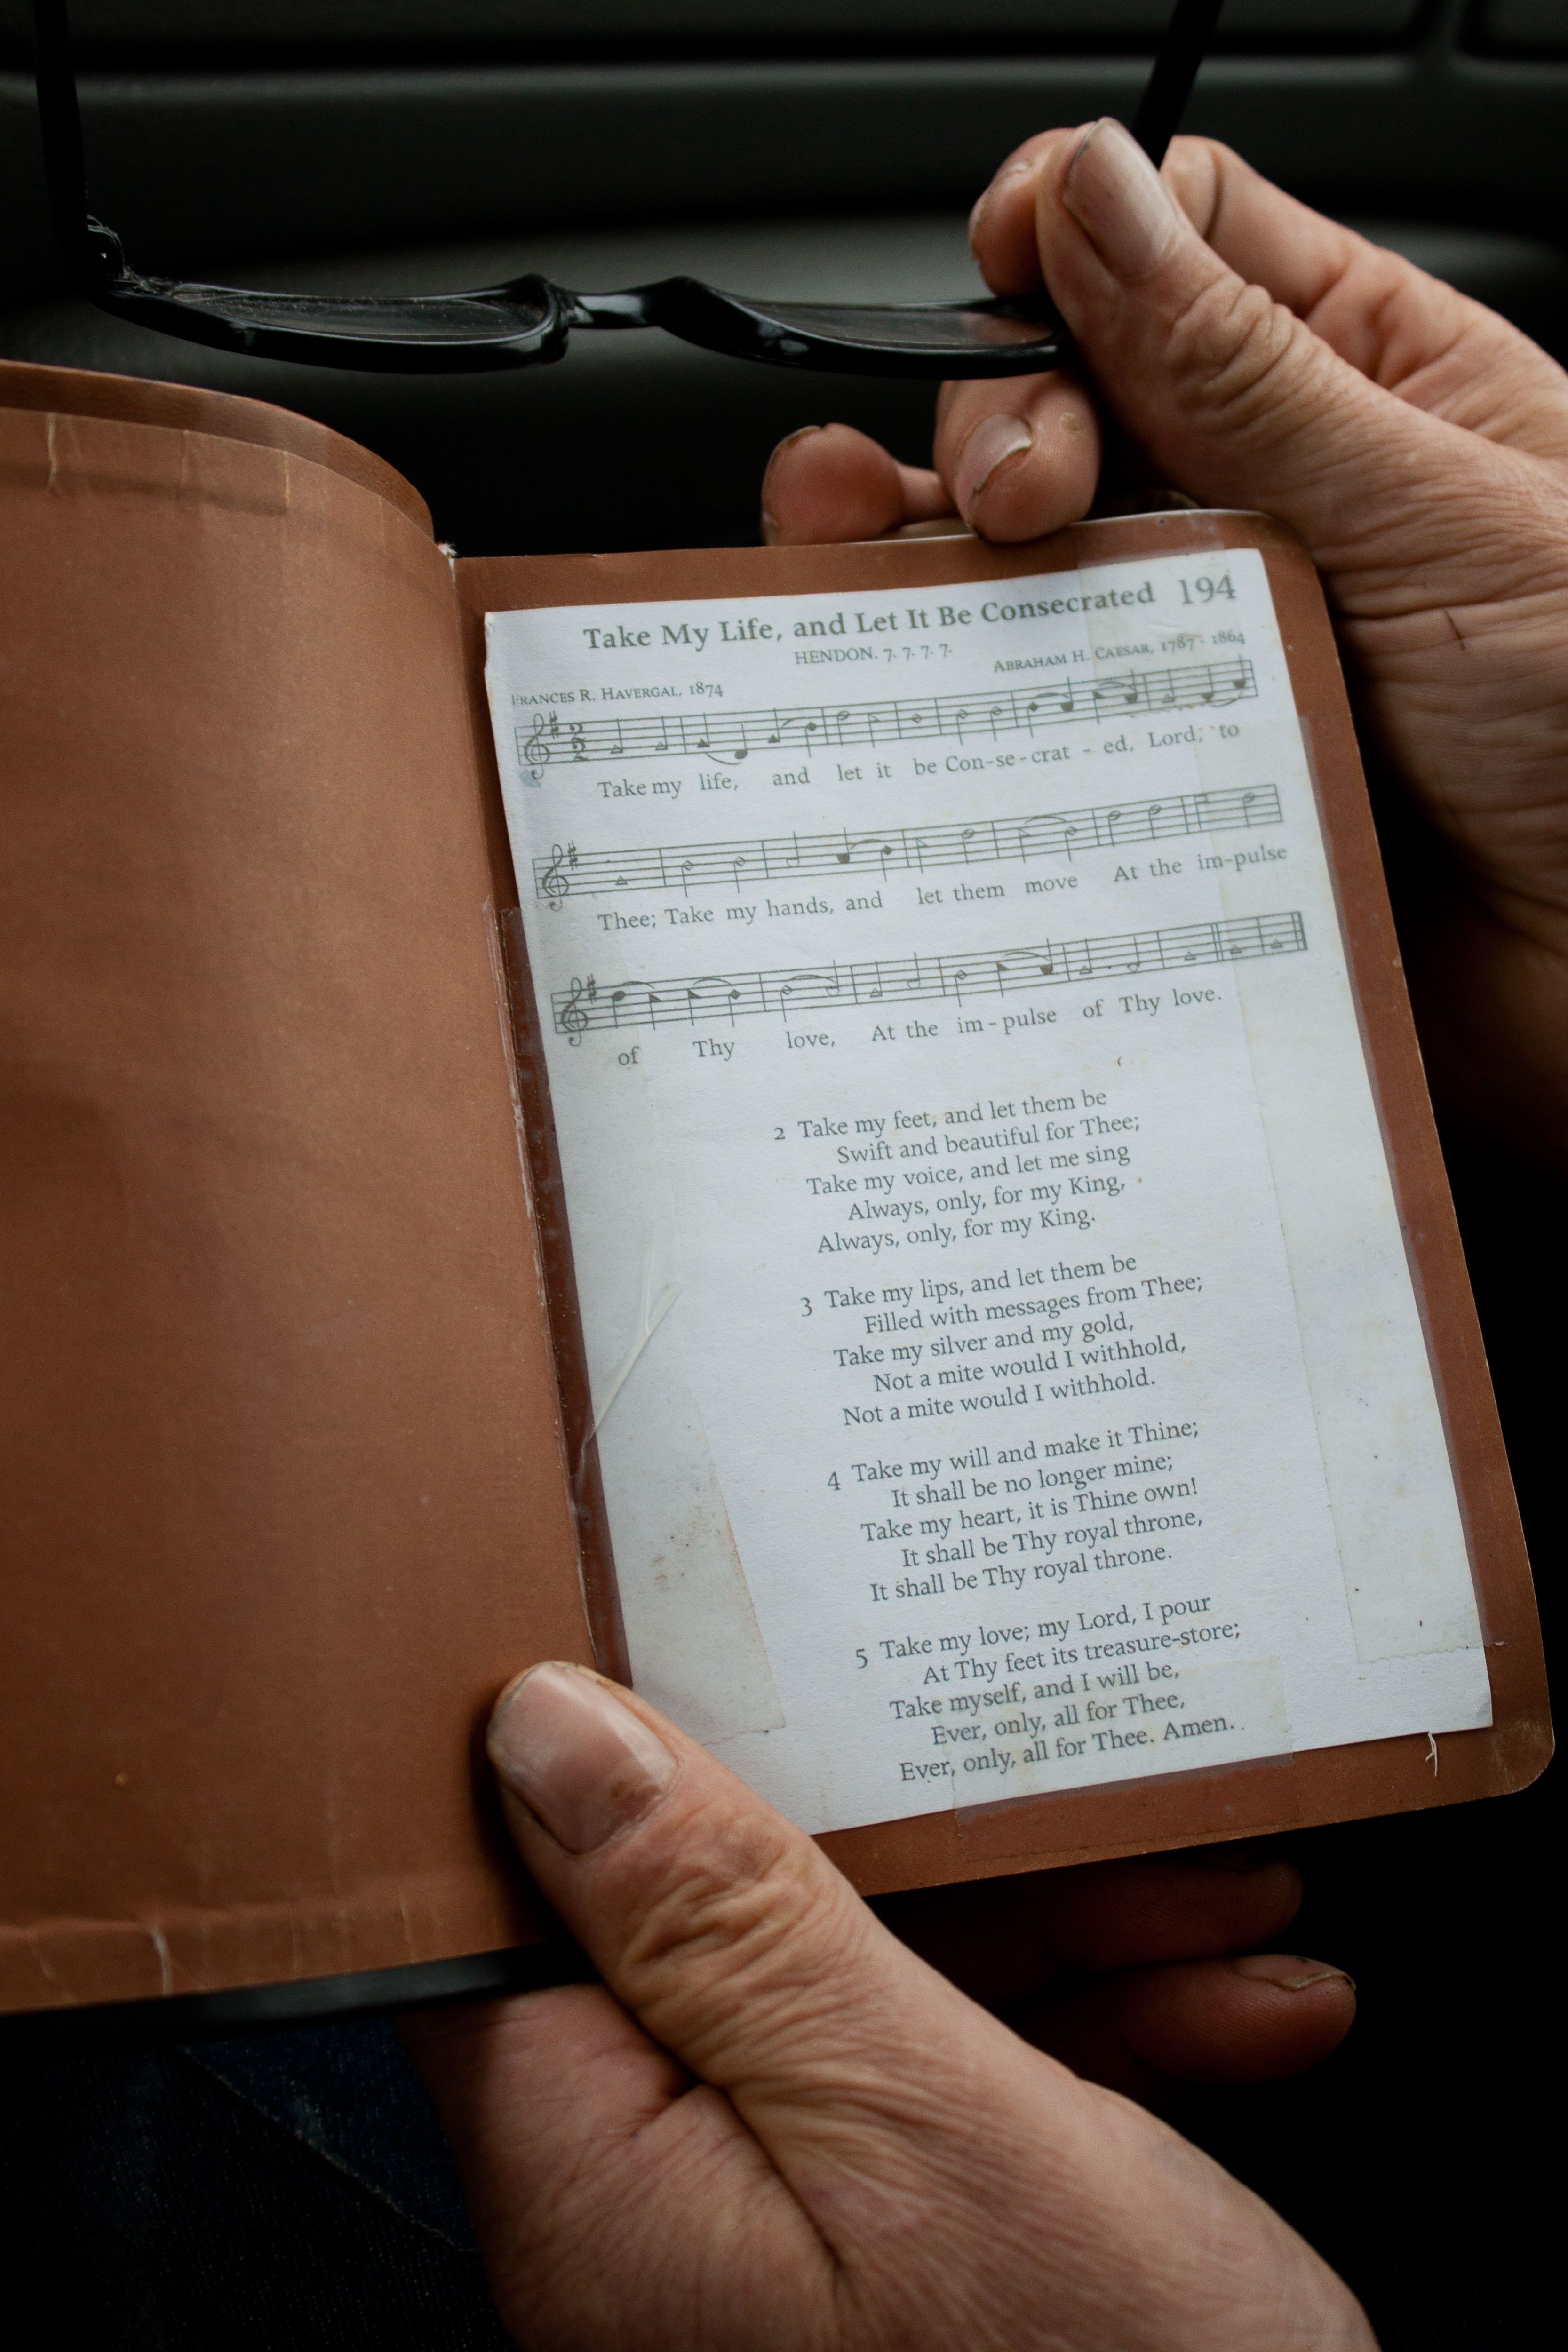 Take My Life, and Let It Be Consecrated 194
HENDON. 7. 7. 7. 7.
FRANCES R. HAVERGAL, 1874 ABRAHAM H. CAESAR, 1787 - 1864
2 2
Take my life, and let it be Con-se-crat - ed, Lord; to
Thee; Take my hands, and let them move At the im-pulse
of Thy love, At the im-pulse of Thy love.
2 Take my feet, and let them be
Swift and beautiful for Thee;
Take my voice, and let me sing
Always, only, for my King,
Always, only, for my King.
3 Take my lips, and let them be
Filled with messages from Thee;
Take my silver and my gold,
Not a mite would I withhold,
Not a mite would I withhold.
4 Take my will and make it Thine;
It shall be no longer mine;
Take my heart, it is Thine own!
It shall be Thy royal throne,
It shall be Thy royal throne.
5 Take my love; my Lord, I pour
At Thy feet its treasure-store;
Take myself, and I will be,
Ever, only, all for Thee,
Ever, only, all for Thee. Amen.